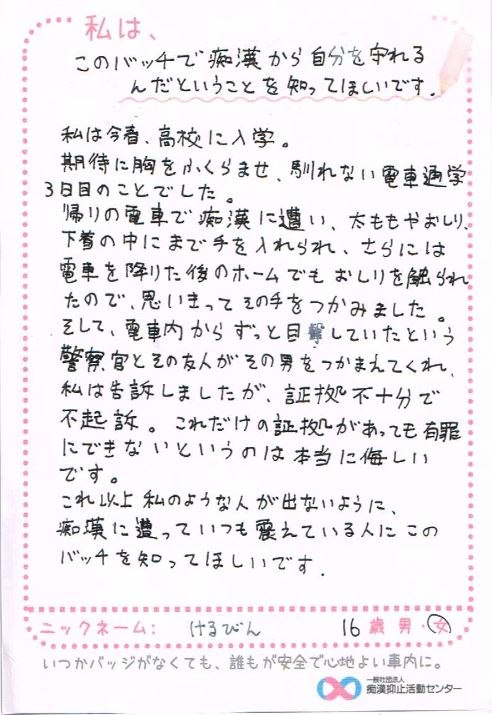 私は、
このバッチで痴漢から自分を守れる
んだということを知ってほしいです。
私は今春、高校に入学。
期待に胸をふくらませ、馴れない電車通学
3日目のことでした。
帰りの電車で痴漢に遭い、太ももやおしり、
下着の中にまで手を入れられ、さらには
電車を降りた後のホームでもおしりを触られ
たので、思いきってその手をつかみました。
そして、電車内からずっと目撃していたという
警察官とその友人がその男をつかまえてくれ、
私は告訴しましたが、証拠不十分で
不起訴。これだけの証拠があっても有罪
にできないというのは本当に悔しい
です。
これ以上私のような人が出ないように、
痴漢に遭っていつも震えている人にこの
バッチを知ってほしいです.
ニックネーム: けるびん 16歳 男・女
いつかバッジがなくても、誰もが安全で心地よい車内に。
一般社団法人
痴漢抑止活動センター